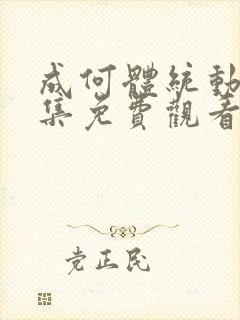 成何體統動
集免費觀看
党正民